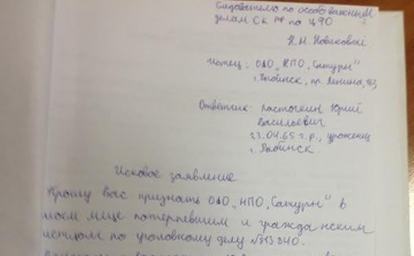 Следователю по особо важным
делам СК РФ по ЦФО
Н.Н. Новиковой
Истец: ОАО „НПО „Сатурн"
г. Рыбинск, пр. Ленина, 163
Ответчик: Ласточкин Юрий
Васильевич
23.04.65 г.р., уроженец
г. Рыбинск
Исковое заявление
Прошу вас признать ОАО „НПО „Сатурн" в
моем лице потерпевшим и гражданским
истцом по уголовному делу №